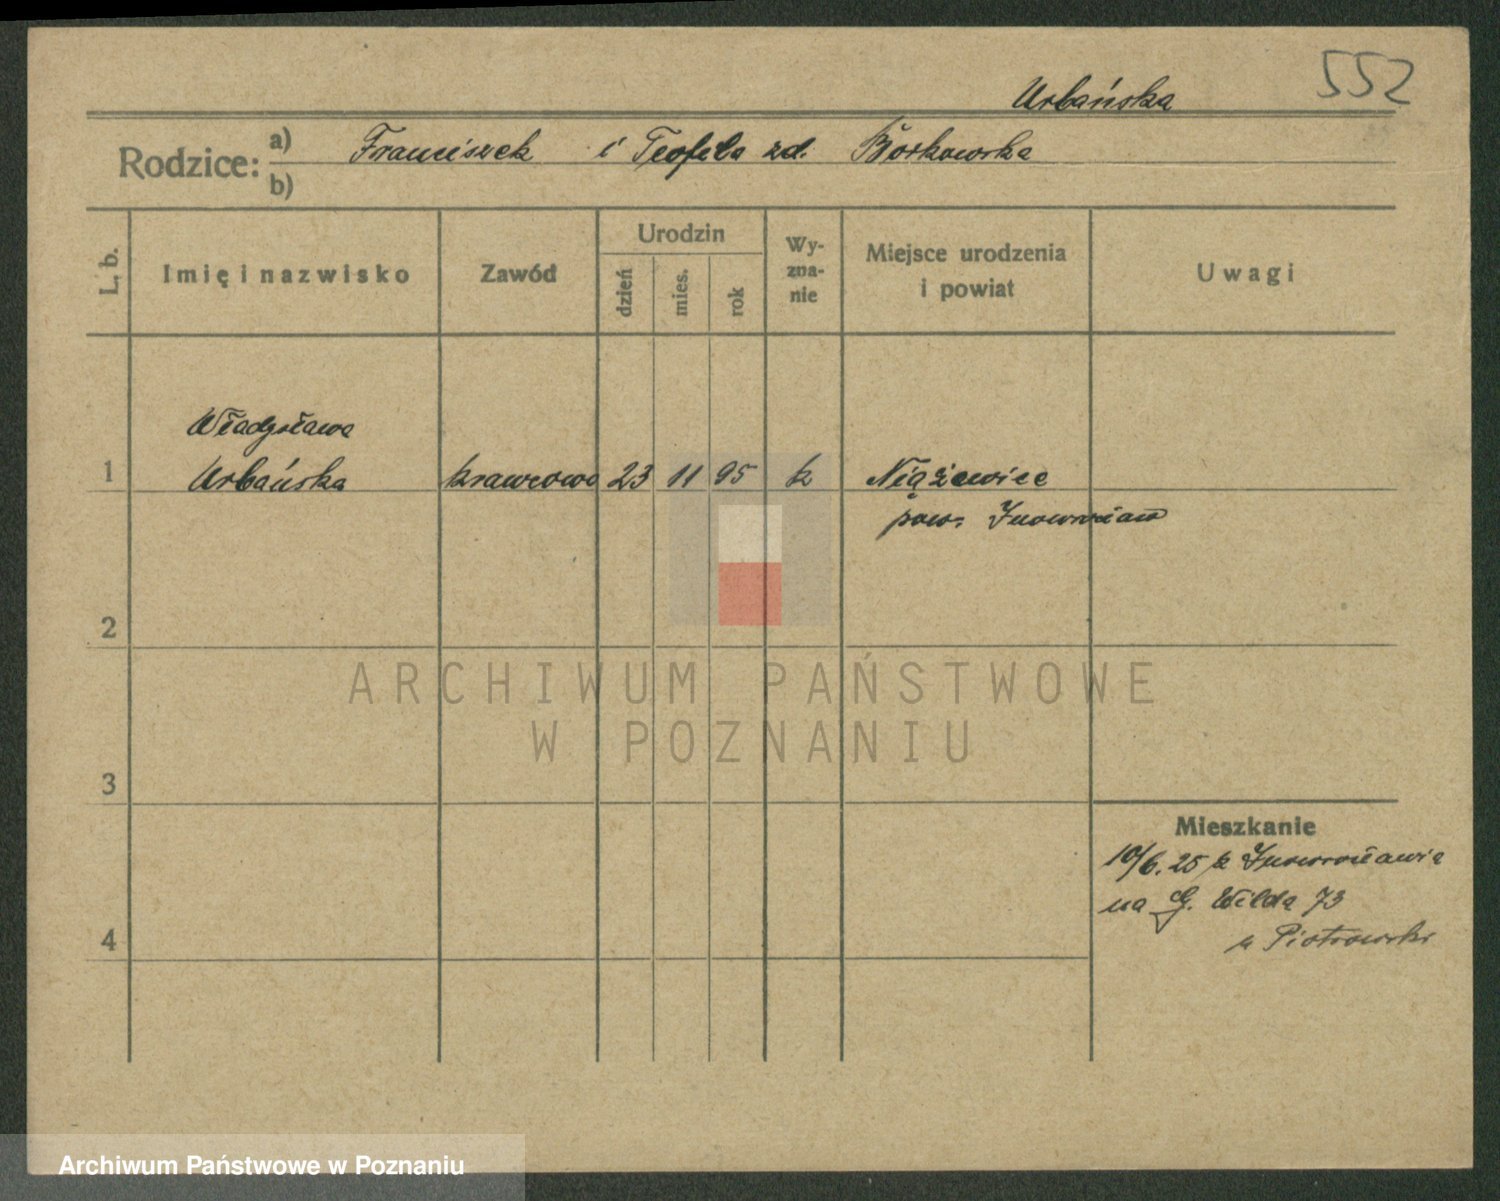 552
Urbańska
Rodzice: a) Franciszek i Teofela zd. Borkowska
b)
L. b. Imię i nazwisko Zawód Urodzin dzień mies. rok Wy-zna-nie Miejsce urodzenia i powiat Uwagi
Władysława
1 Urbańska krawcowa 23 11 95 k
pow. Inowrocław
2
ARCHIWUM PAŃSTWOWE
W POZNANIU
3
Mieszkanie
10/6. 25 z Inowrocławia
na G. Wilda 73
4 u Piotrowski
Archiwum Państwowe w Poznaniu